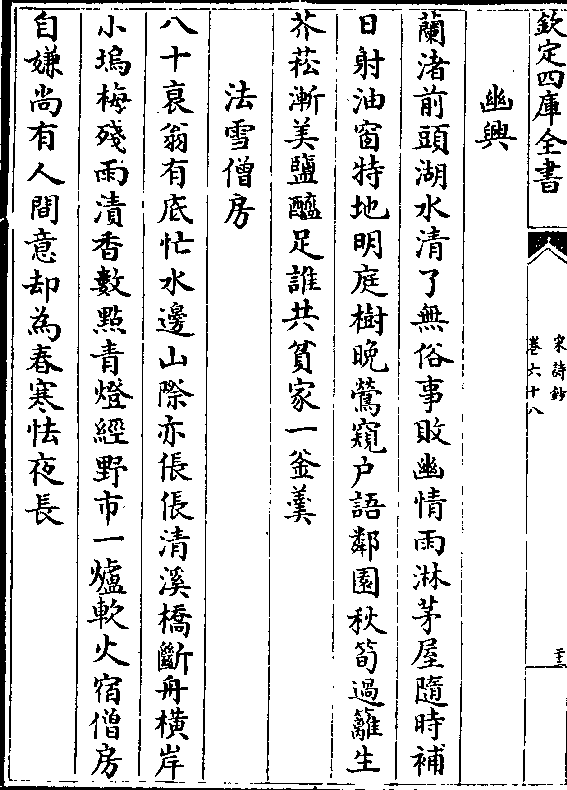 欽定四庫全書
宋詩鈔
卷六十八
幽興
蘭渚前頭湖水清了無俗事敗幽情雨淋茅屋隨時補
日射油窗特地明庭樹晚鶯窺户語鄰園秋筍過籬生
芥菘漸美鹽醯足誰共貧家一釜羮
法雪僧房
八十衰翁有底忙水邊山際亦倀倀清溪橋斷舟横岸
小塢梅殘雨漬香數點青燈經野市一爐軟火宿僧房
自嫌尚有人間意却為春寒怯夜長